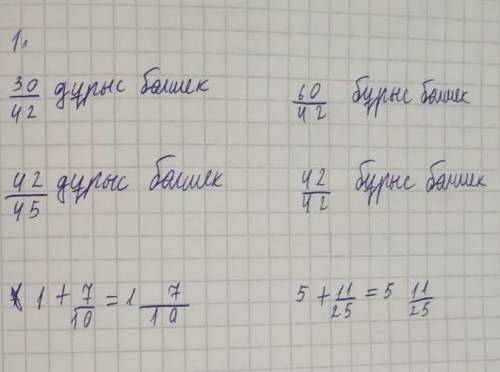 1.
30/42 дұрыс бөлшек
60/42 бұрыс бөлшек
42/45 дұрыс бөлшек
42/42 бұрыс бөлшек
1 + 7/10 = 1 7/10
5 + 11/25 = 5 11/25